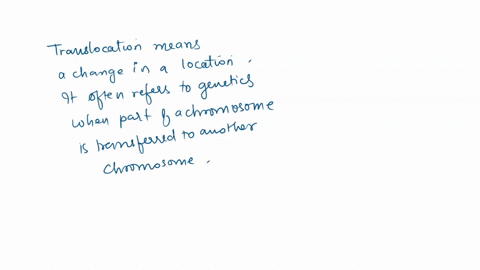 Translocation means
a change in a location.
It often refers to genetics
when part of a chromosome
is transferred to another
chromosome.